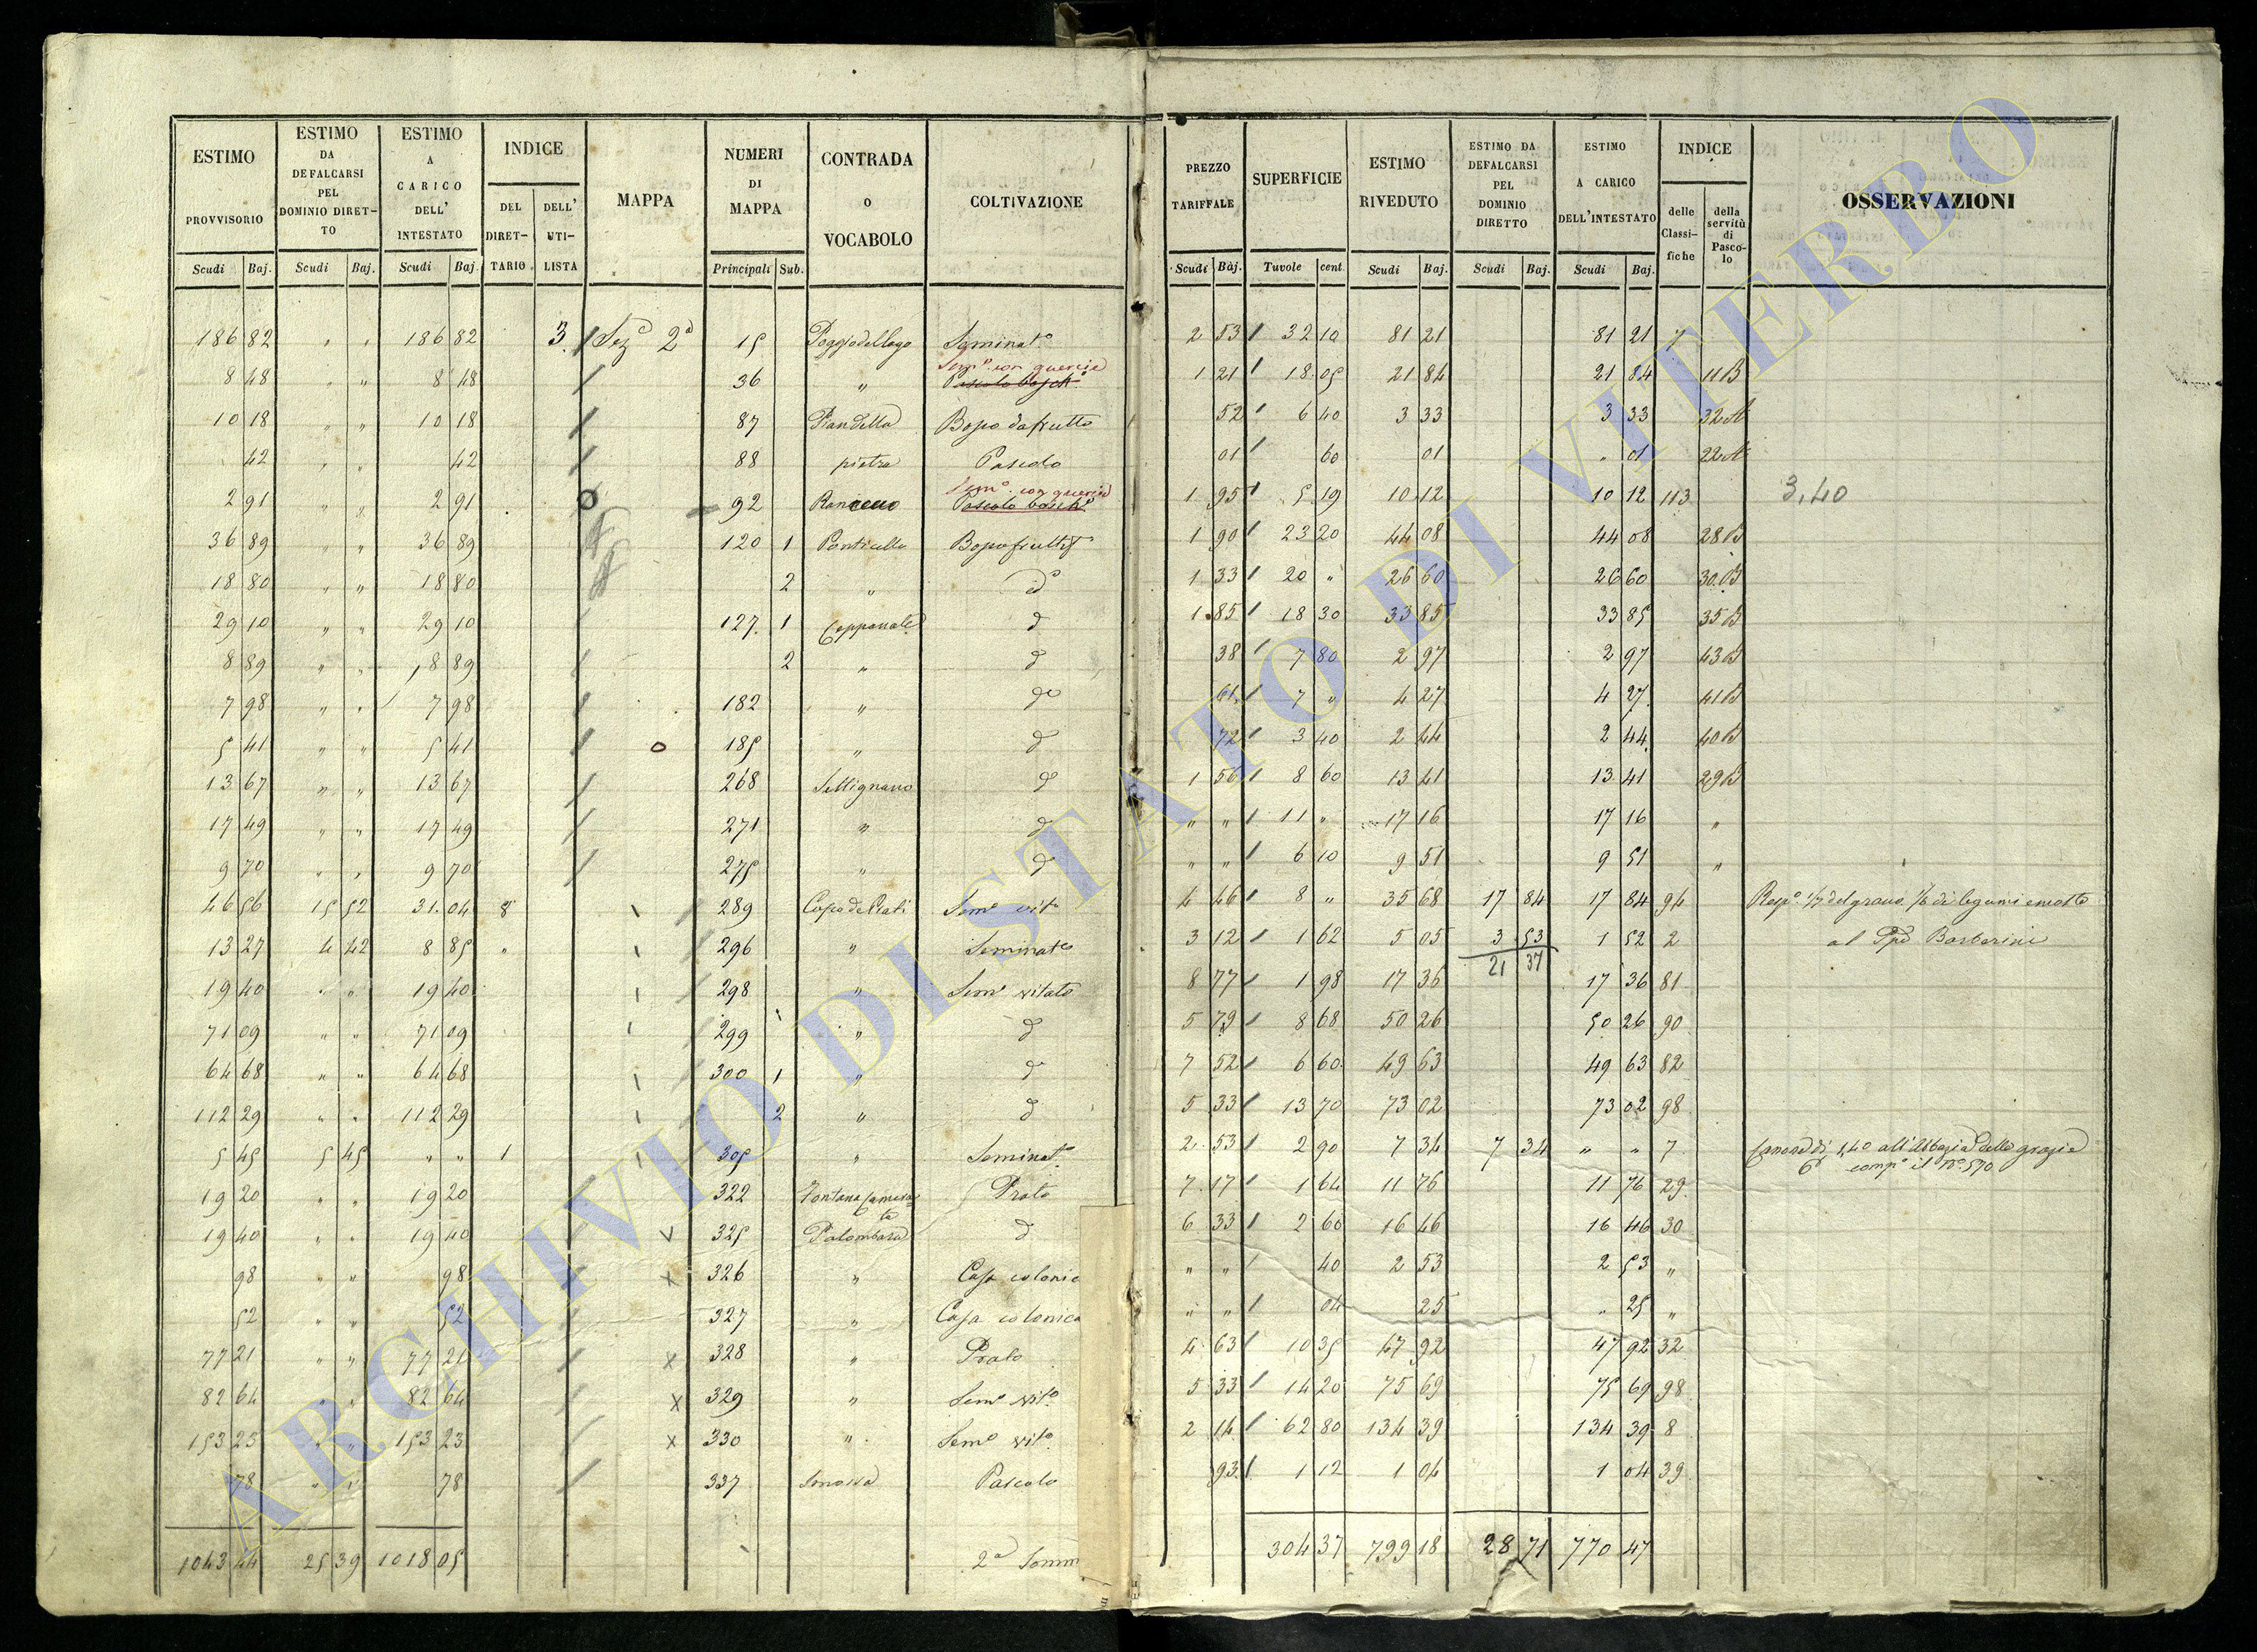 ESTIMO PROVVISORIO | ESTIMO DA DEFALCARSI PEL DOMINIO DIRET-TO | ESTIMO A CARICO DELL' INTESTATO | INDICE DEL DIRET-TARIO | DELL' UTI-LISTA | MAPPA | NUMERI DI MAPPA | CONTRADA O VOCABOLO | COLTIVAZIONE | PREZZO TARIFFALE | SUPERFICIE | ESTIMO RIVEDUTO | ESTIMO DA DEFALCARSI PEL DOMINIO DIRETTO | ESTIMO A CARICO DELL'INTESTATO | INDICE delle Classi-fiche | della servitù di Pasco-lo | OSSERVAZIONI
Scudi | Baj. | Scudi | Baj. | Scudi | Baj. | Principali | Sub. | Scudi | Baj. | Tavole | cent. | Scudi | Baj. | Scudi | Baj. | Scudi | Baj.
186 82 " " 186 82 3 Sez.e 2a 15 Poggio del lago Seminato 2 53 32 10 81 21 81 21 7
Sem.o con quercie
8 48 " " 8 48 36 " Pascolo bosch.o 1 21 18 05 21 84 21 84 11 B
10 18 " " 10 18 87 Pian della Bosco da frutto 52 6 40 3 33 3 33 32 A
42 " " 42 88 pietra Pascolo 01 60 01 " 01 22 A
Sem.o con quercie
2 91 " " 2 91 92 Pascolo bosch.o 1 95 5 19 10 12 10 12 113 3,40
36 89 " " 36 89 120 1 Ponticello 1 90 23 20 44 08 44 08 28 B
18 80 " " 18 80 2 " d.o 1 33 20 " 26 60 26 60 30 B
29 10 " " 29 10 127 1 d 1 85 18 30 33 85 33 85 35 B
8 89 " " 8 89 2 " d 38 7 80 2 97 2 97 43 B
7 98 " " 7 98 182 " d.o 61 7 " 4 27 4 27 41 B
5 41 " " 5 41 o 185 " d 72 3 40 2 44 2 44 40 B
13 67 " " 13 67 268 Settignano d.o 1 56 8 60 13 41 13 41 29 B
17 49 " " 17 49 271 " d " " 11 " 17 16 17 16 "
9 70 " " 9 70 275 " d " " 6 10 9 51 9 51 "
46 56 15 52 31 04 8 289 Capo de Prati Sem.o vit.o 4 46 8 " 35 68 17 84 17 84 94 Risp.e 1/7 del grano 1/6 di legumi e mosto
13 27 4 42 8 85 " 296 " Seminato 3 12 1 62 5 05 3 53 1 52 2 al Barberini
21 37
19 40 " " 19 40 298 " Sem.o vitato 8 77 1 98 17 36 17 36 81
71 09 " " 71 09 299 " d 5 79 8 68 50 26 50 26 90
64 68 " " 64 68 300 1 " d 7 52 6 60 49 63 49 63 82
112 29 " " 112 29 2 " d 5 33 13 70 73 02 73 02 98
5 45 5 45 " " 1 305 " Seminato 2 53 2 90 7 34 7 34 " " 7 Canone di 1,40 all'Abbazia delle grazie
comp.o il N.o 570
19 20 " " 19 20 322 Fontana Prato 7 17 1 64 11 76 11 76 29
19 40 " " 19 40 x 325 Palombara d 6 33 2 60 16 46 16 46 30
98 " " 98 x 326 " Casa colonic " " 40 2 53 2 53 "
52 " " 52 327 " Casa colonica " " 04 25 " 25 "
77 21 " " 77 21 x 328 " Prato 4 63 10 35 47 92 47 92 32
82 64 " " 82 64 x 329 " Sem.o vit.o 5 33 14 20 75 69 75 69 98
153 23 " " 153 23 x 330 " Sem.o vit.o 2 14 62 80 134 39 134 39 8
78 " " 78 337 Pascolo 93 1 12 1 04 1 04 39
1043 44 25 39 1018 05 2a Somm 304 37 799 18 28 71 770 47
ARCHIVIO DI STATO DI VITERBO